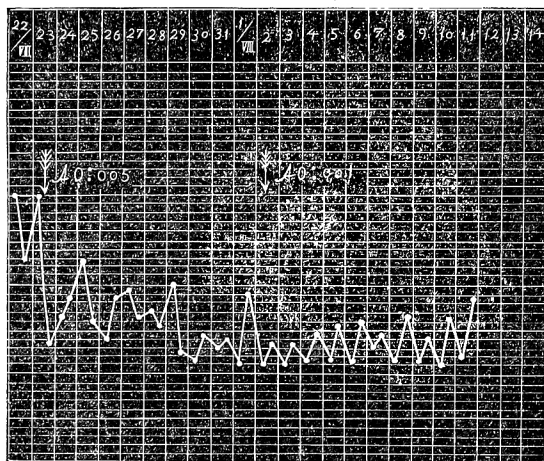 22/VII 23 24 25 26 27 28 29 30 31 1/VIII 2 3 4 5 6 7 8 9 10 11 12 13 14
A0·005 A0·001